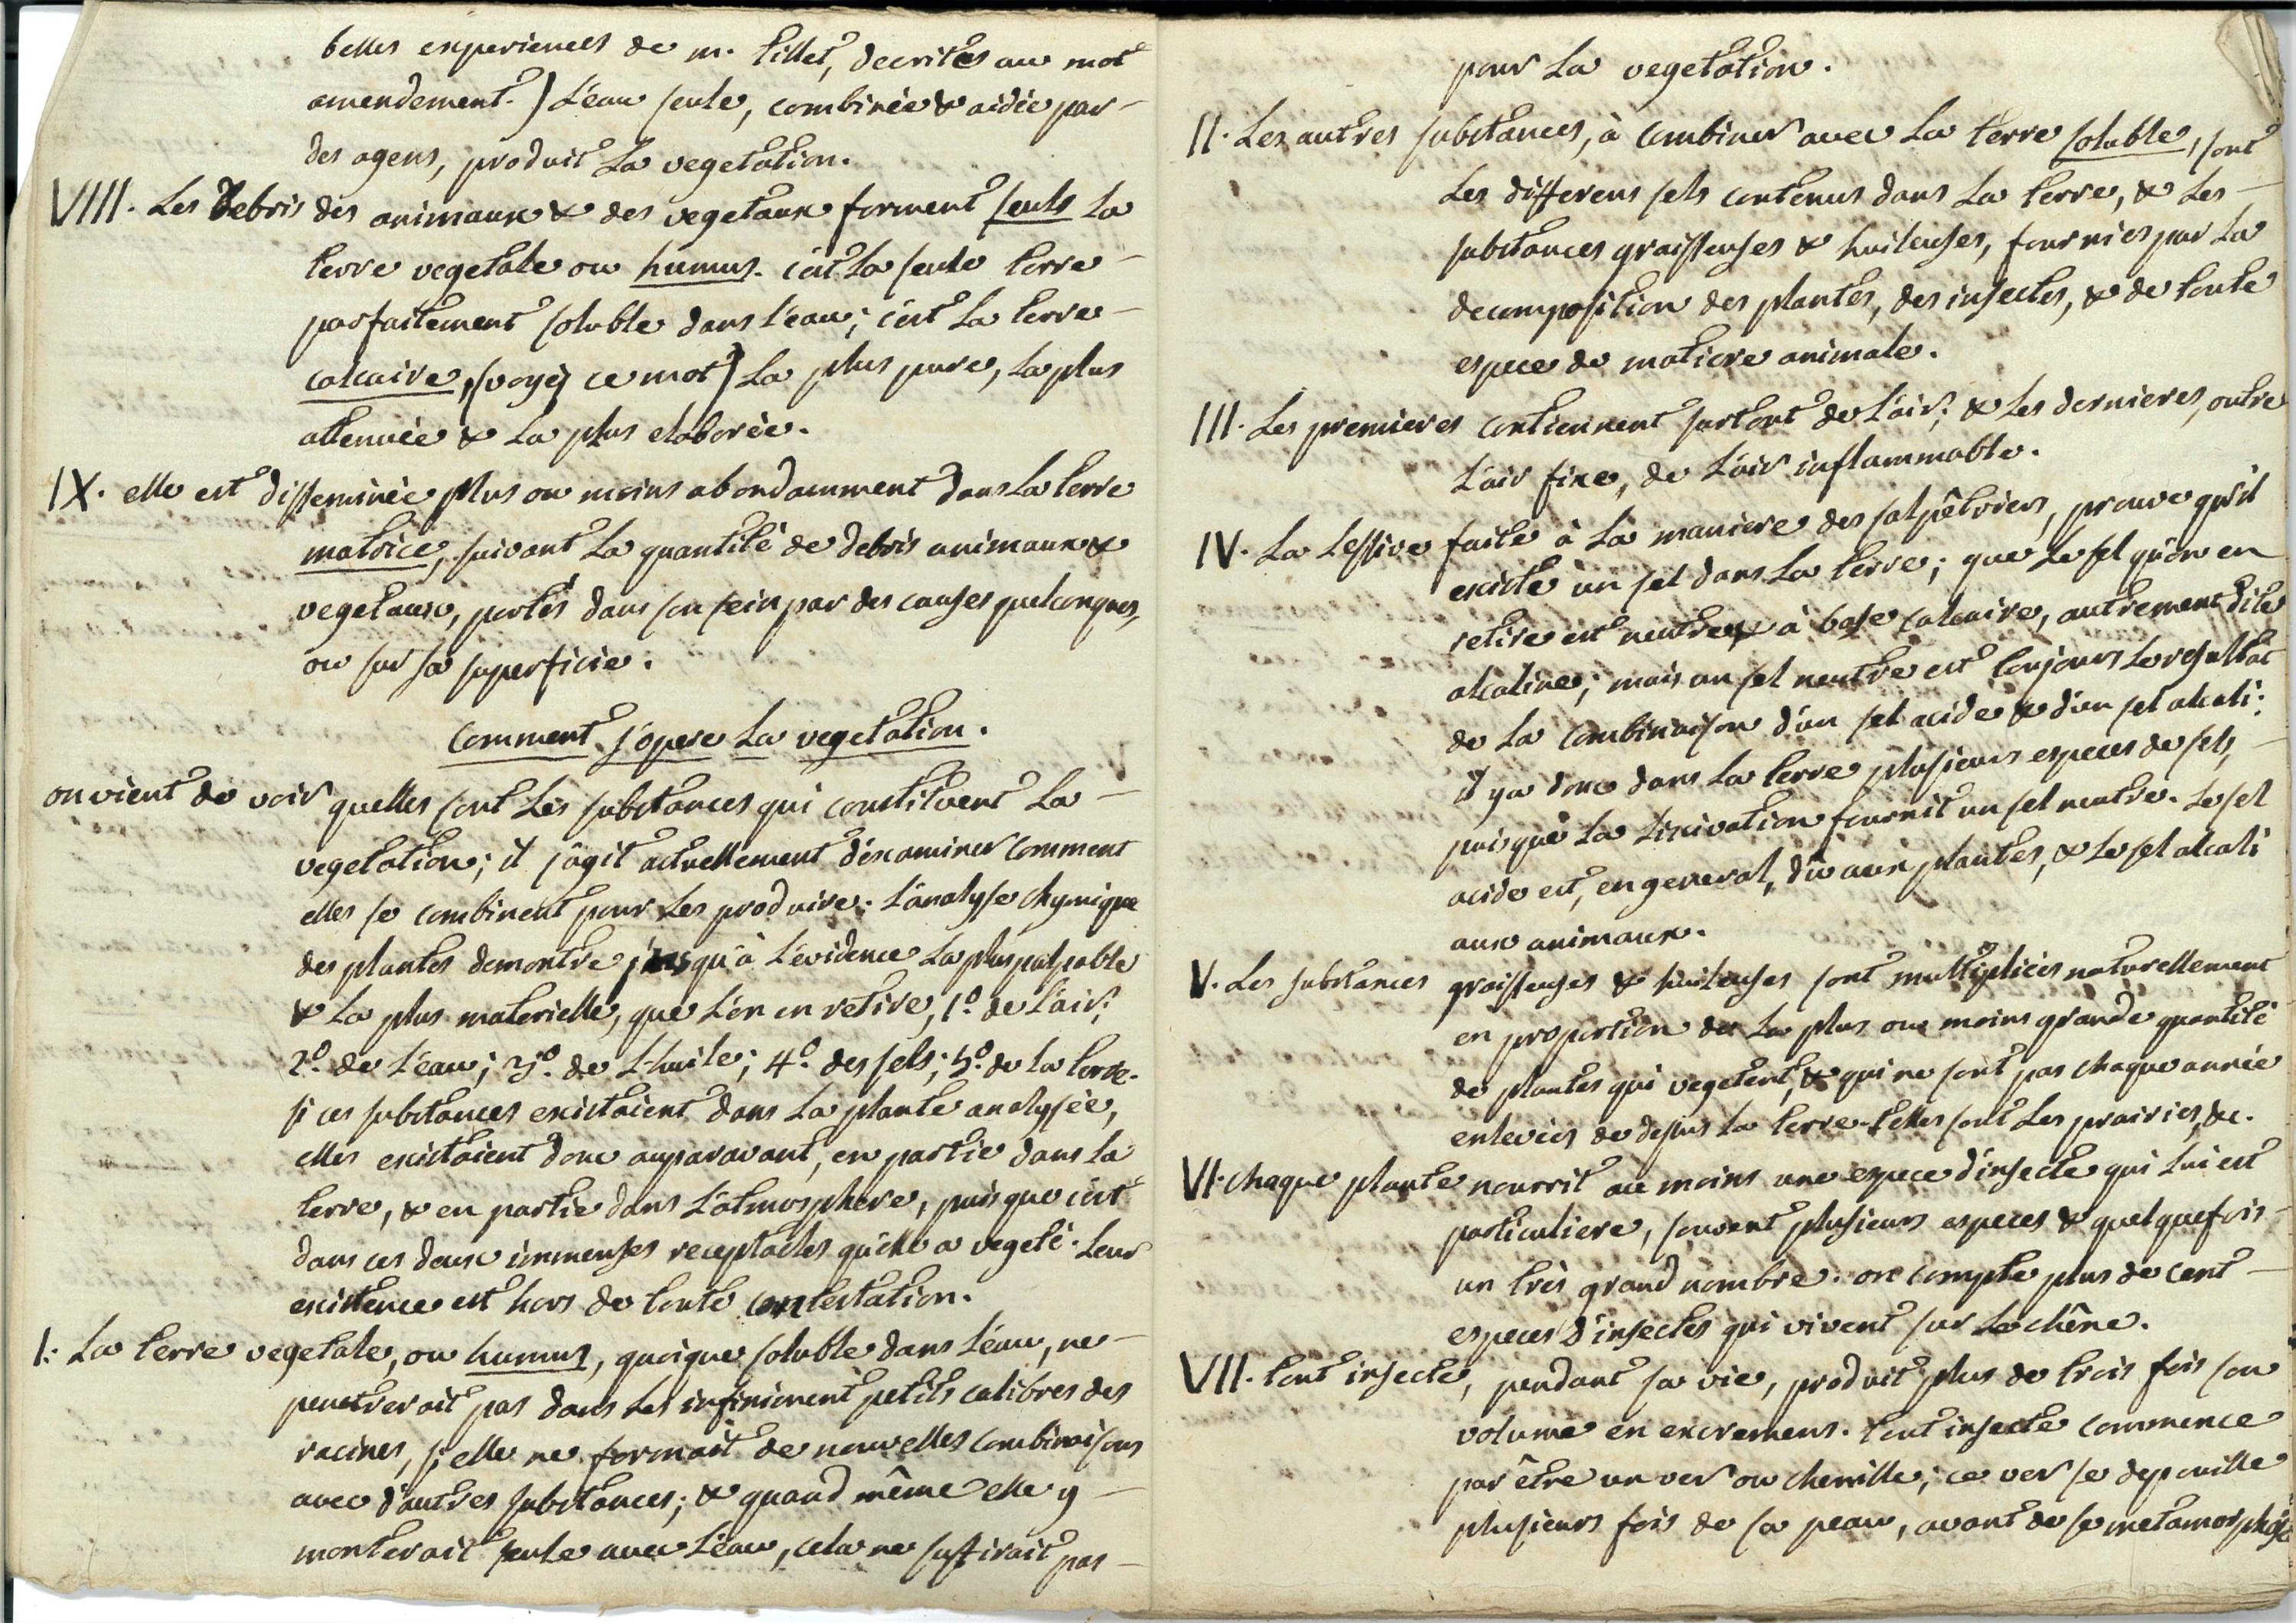 belles experiences de m. tillet, decrites au mot
amendement.) L'eau seule, combinée & aidée par
des agens, produit La vegetation.
VIII. Les Debris des animaux & des vegetaux forment seuls La
terre vegetale ou humus. c'est La seule terre
parfaitement soluble dans L'eau; c'est La terre
calcaire, (voyez ce mot) La plus pure, La plus
attenuée & La plus elaborée.
IX. elle est disseminée plus ou moins abondamment dans La terre
matrice, suivant La quantité de debris animaux &
vegetaux, portés dans son sein par des causes quelconques,
ou sur sa superficie.
Comment s'opere La vegetation.
on vient de voir quelles sont Les substances qui constituent La
vegetation; il s'agit actuellement d'examiner comment
elles se combinent pour Les produire. L'analyse chymique
des plantes demontre jusqu'à L'évidence La plus palpable
& La plus materielle, que L'on en retire, 1º. de L'air;
2º. de L'eau; 3º. de L'huile; 4º. des sels; 5º. de la terre.
si ces substances existoient dans La plante analysée,
elles existoient donc auparavant, en partie dans La
terre, & en partie dans L'atmosphere, puisque c'est
dans ces deux immenses receptacles qu'elle a vegeté. Leur
existence est hors de toute contestation.
I. La terre vegetale, ou humus, quoique soluble dans L'eau, ne
penetreroit pas dans Les infiniment petits calibres des
racines, si elle ne formoit de nouvelles combinaisons
avec d'autres substances; & quand même elle y
monteroit seule avec L'eau, cela ne suffiroit pas
pour La vegetation.
II. Les autres substances, à combiner avec La terre soluble, sont
Les differens sels contenus dans La terre, & Les
substances graisseuses & huileuses, fournies par La
decomposition des plantes, des insectes, & de toute
espece de matiere animale.
III. Les premieres contiennent surtout de L'air; & Les dernieres, outre
L'air fixe, de L'air inflammable.
IV. La Lessive faite à La maniere des salpêtriers, prouve qu'il
existe un sel dans La terre; que Le sel qu'on en
retire est neutre & à base calcaire, autrement dite
alcaline; mais un sel neutre est toujours Le resultat
de La combinaison d'un sel acide & d'un sel alcali;
il y a donc dans La terre plusieurs especes de sels,
puisque La Lixivation fournit un sel neutre. Le sel
acide est, en general, dû aux plantes, & Le sel alcali
aux animaux.
V. Les substances graisseuses & huileuses sont multipliées naturellement
en proportion de La plus ou moins grande quantité
de plantes qui vegetent, & qui ne sont pas chaque année
enlevées de dessus La terre. telles sont Les prairies, &c.
VI. chaque plante nourrit au moins une espece d'insecte qui Lui est
particuliere, souvent plusieurs especes & quelquefois
un très grand nombre. on compte plus de cent
especes d'insectes qui vivent sur Le chêne.
VII. tout insecte, pendant sa vie, produit plus de trois fois son
volume en excremens. tout insecte commence
par être un ver ou chenille; ce ver se depouille
plusieurs fois de sa peau, avant de se metamorphose